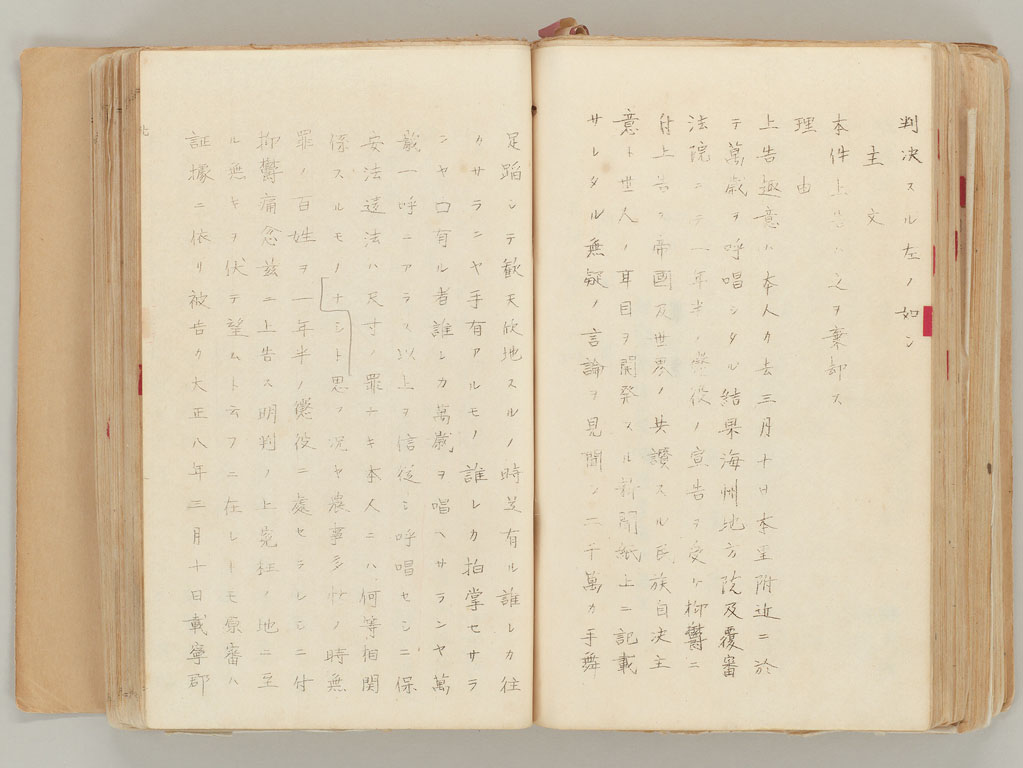 判决スル左ノ如シ
主文
本件上告ハ之ヲ棄却ス
理由
上告趣意ハ本人カ去三月十日本里附近ニ於
テ萬歳ヲ呼唱シタル結果海州地方院及覆審
法院ニテ一年半ノ懲役ノ宣告ヲ受ケ抑鬱ニ
付上告ス帝國及世界ノ共讃スル民族自决主
意ト世人ノ耳目ヲ開発スル新聞紙上ニ記載
サレタル無疑ノ言論ヲ見聞シ二千萬カ手舞
足蹈シテ歓天欣地スルノ時足有ル誰レカ往
クサラニヤ手有アルモノ誰レカ拍掌セサラ
ンヤ口有ル者誰レカ萬歳ヲ唱ヘサランヤ萬
歳一呼ニアラス以上ヲ信従シ呼唱セシニ保
安法違法ハ尺寸ノ罪ナキ本人ニハ何等相関
係スルモノナシト思フ况ヤ農事多忙ノ時無
罪ノ百姓ヲ一年半ノ懲役ニ處セラレシニ付
抑鬱痛念玆ニ上告ス明判ノ上寃枉ノ地ニ至
ル無キヲ伏テ望ムト云フニ在レトモ原審ハ
証據ニ依リ被告カ大正八年三月十日載寧郡